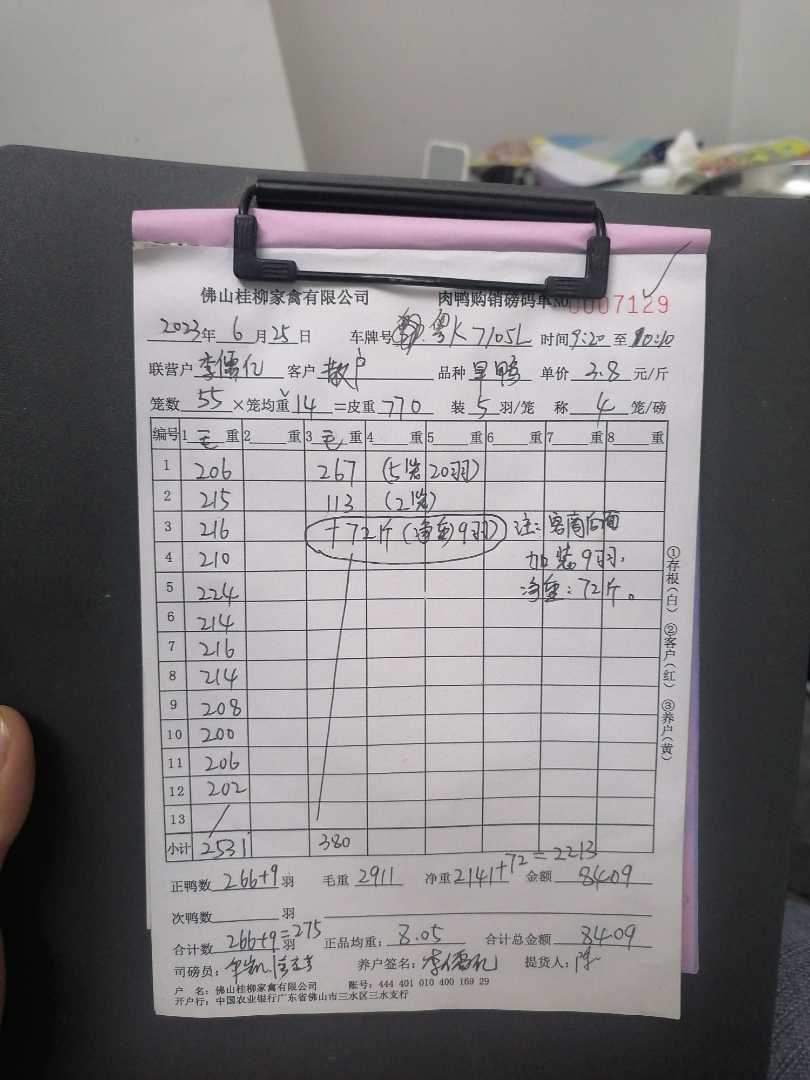 佛山桂柳家禽有限公司 肉鸭购销磅码单 NO 0007129
2023年 6月25日 车牌号 粤K7105L 时间 9:20 至 10:10
联营户 李儒亿 客户 散户 品种 单价 3.8 元/斤
笼数 55 ×笼均重 14 =皮重 770 装 5 羽/笼 称 4 笼/磅
编号 1 毛 重 2 重 3 毛 重 4 重 5 重 6 重 7 重 8 重
1 206 267 (5笼20羽)
2 215 113 (2笼)
3 216 +72斤(净重9羽) 注:客商后面
4 210 加装9羽,
5 224 净重:72斤。
6 214
7 216
8 214
9 208
10 200
11 206
12 202
13
小计 2531 380
正鸭数 266+9 羽 毛重 2911 净重 2141+72=2213 金额 8409
次鸭数 羽
合计数 266+9=275 羽 正品均重: 8.05 合计总金额 8409
司磅员: 养户签名: 李儒亿 提货人: 陈
户 名: 佛山桂柳家禽有限公司 账号: 444 401 010 400 169 29
开户行: 中国农业银行广东省佛山市三水区三水支行
①存根(白) ②客户(红) ③养户(黄)